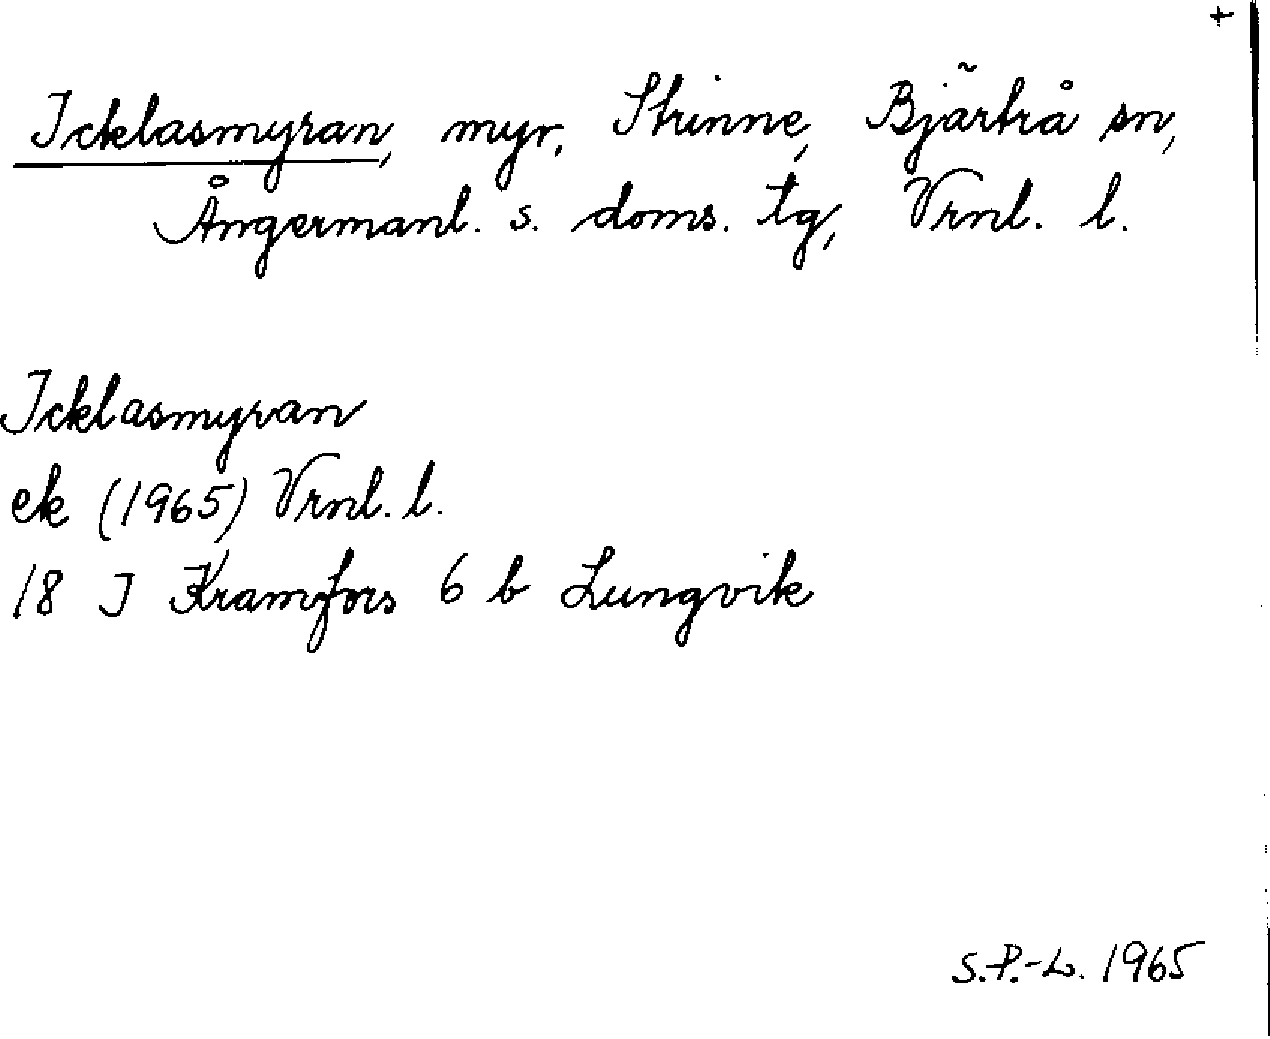 +
Icklasmyran, myr, Strinne, Bjärtrå sn,
Ångermanl. s. doms. tg, Vrnl. l.
Icklasmyran
ek (1965) Vrnl. l.
18 I Kramfors 6 b Lungvik
S.P.-L. 1965